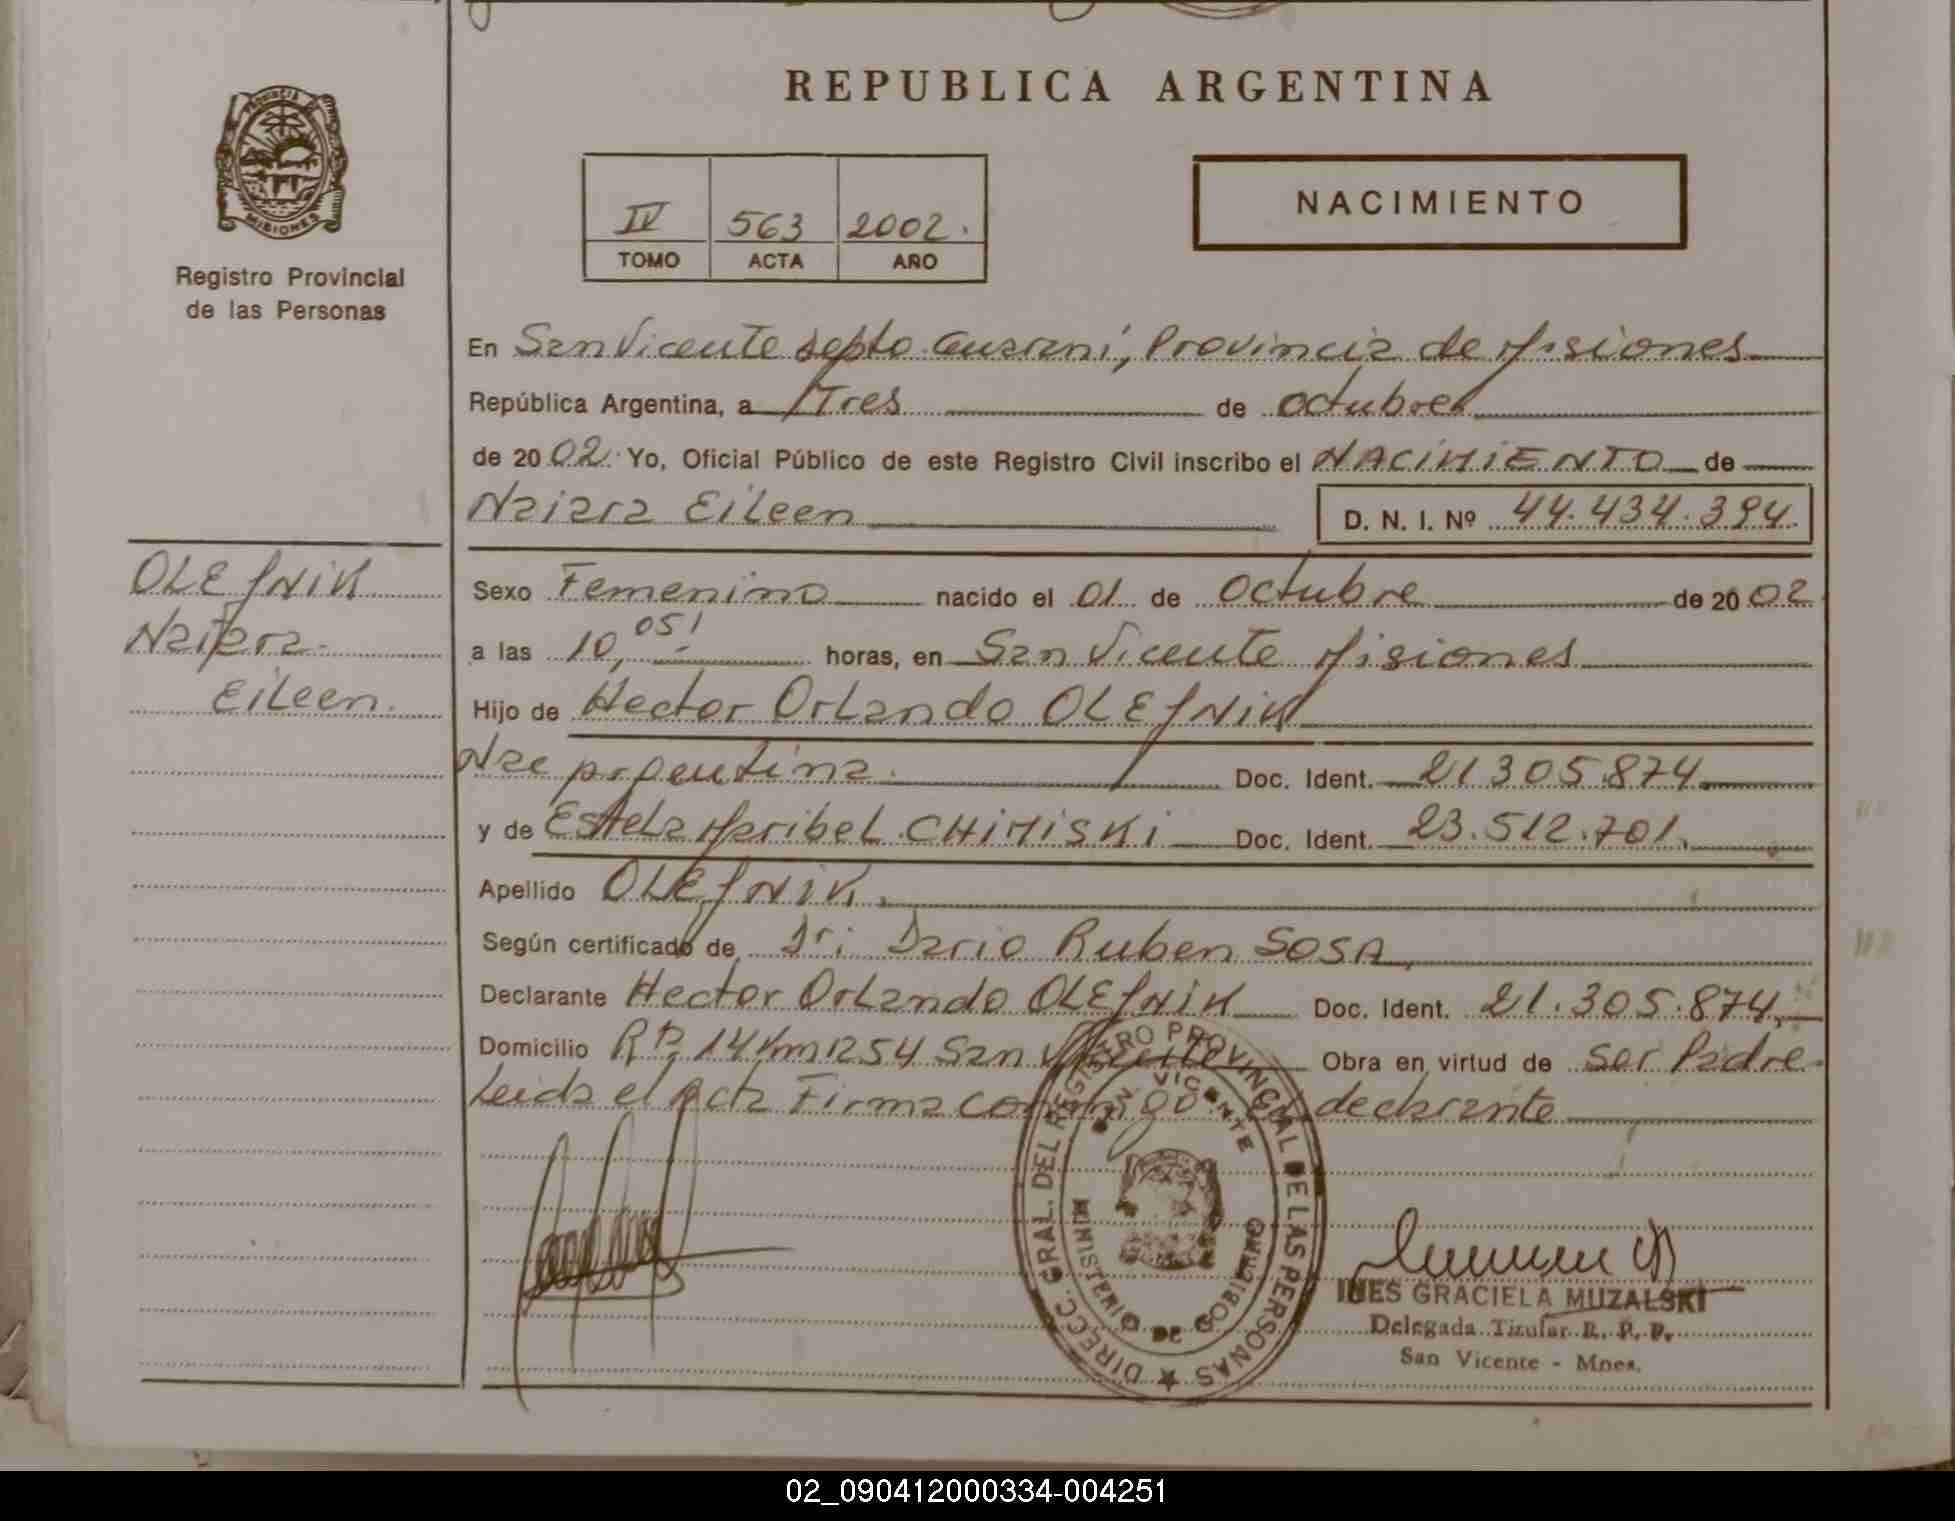 REPUBLICA ARGENTINA
PROVINCIA DE
MISIONES
Registro Provincial
de las Personas
IV 563 2002.
TOMO ACTA AÑO
NACIMIENTO
En San Vicente depto. Guaraní, Provincia de Misiones
República Argentina, a Tres de octubre
de 2002 Yo, Oficial Público de este Registro Civil inscribo el NACIMIENTO de
Naiara Eileen D. N. I. Nº 44.434.394.
OLEJNIK
Naiara
Eileen.
Sexo Femenino nacido el 01 de Octubre de 2002
a las 10,05' horas, en San Vicente Misiones
Hijo de Hector Orlando OLEJNIK
Nac Argentina. Doc. Ident. 21.305.874
y de Estela Maribel CHIMISKI Doc. Ident. 23.512.701.
Apellido OLEJNIK.
Según certificado de Dr: Dario Ruben SOSA,
Declarante Hector Orlando OLEJNIK Doc. Ident. 21.305.874,
Domicilio 14 Km 1254 San Vicente Obra en virtud de Ser Padre
Leida el Acta Firma conmigo el declarante
DIRECC. GRAL. DEL REGISTRO PROVINCIAL DE LAS PERSONAS
SAN VICENTE
MINISTERIO DE GOBIERNO
INES GRACIELA MUZALSKI
Delegada Titular R. P. P.
San Vicente - Mnes.
02_090412000334-004251